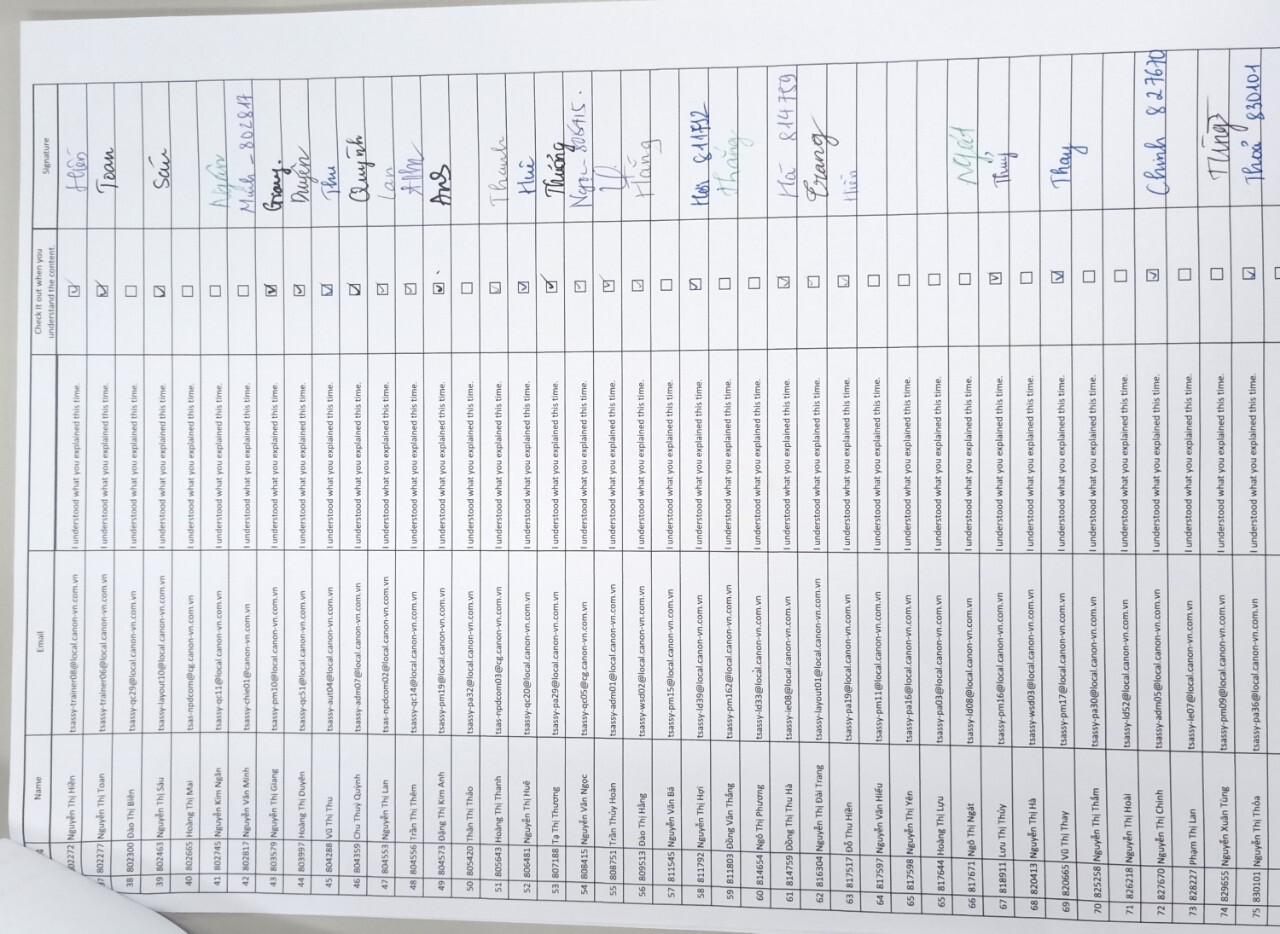 Name Email Check it out when you understand the content. Signature
802272 Nguyễn Thị Hiền tsassy-trainer08@local.canon-vn.com.vn I understood what you explained this time. Hiền
802277 Nguyễn Thị Toan tsassy-trainer06@local.canon-vn.com.vn I understood what you explained this time. Toan
38 802300 Đào Thị Biên tsassy-qc29@local.canon-vn.com.vn I understood what you explained this time.
39 802463 Nguyễn Thị Sáu tsassy-layout10@local.canon-vn.com.vn I understood what you explained this time. Sáu
40 802665 Hoàng Thị Mai tsas-npdcom@cg.canon-vn.com.vn I understood what you explained this time.
41 802745 Nguyễn Kim Ngân tsassy-qc11@local.canon-vn.com.vn I understood what you explained this time. Ngân
42 802817 Nguyễn Văn Minh tsassy-chie01@canon-vn.com.vn I understood what you explained this time. Minh - 802817
43 803579 Nguyễn Thị Giang tsassy-pm10@local.canon-vn.com.vn I understood what you explained this time. Giang.
44 803997 Hoàng Thị Duyên tsassy-qc51@local.canon-vn.com.vn I understood what you explained this time. Duyên
45 804288 Vũ Thị Thu tsassy-aut04@local.canon-vn.com.vn I understood what you explained this time. Thu
46 804359 Chu Thuý Quỳnh tsassy-adm07@local.canon-vn.com.vn I understood what you explained this time. Quỳnh
47 804553 Nguyễn Thị Lan tsas-npdcom02@local.canon-vn.com.vn I understood what you explained this time. Lan
48 804556 Trần Thị Thêm tsassy-qc14@local.canon-vn.com.vn I understood what you explained this time.
49 804573 Đặng Thị Kim Anh tsassy-pm19@local.canon-vn.com.vn I understood what you explained this time. Anh
50 805420 Thân Thị Thảo tsassy-pa32@local.canon-vn.com.vn I understood what you explained this time.
51 805643 Hoàng Thị Thanh tsas-npdcom03@cg.canon-vn.com.vn I understood what you explained this time. Thanh
52 806481 Nguyễn Thị Huê tsassy-qc20@local.canon-vn.com.vn I understood what you explained this time. Huê
53 807188 Tạ Thị Thương tsassy-pa29@local.canon-vn.com.vn I understood what you explained this time. Thương
54 808415 Nguyễn Văn Ngọc tsassy-qc05@cg.canon-vn.com.vn I understood what you explained this time. Ngọc
55 808751 Trần Thúy Hoàn tsassy-adm01@local.canon-vn.com.vn I understood what you explained this time.
56 809513 Đào Thị Hằng tsassy-wsd02@local.canon-vn.com.vn I understood what you explained this time. Hằng
57 811545 Nguyễn Văn Bá tsassy-pm15@local.canon-vn.com.vn I understood what you explained this time.
58 811792 Nguyễn Thị Hợi tsassy-ld39@local.canon-vn.com.vn I understood what you explained this time. Hợi 811792
59 811803 Đồng Văn Thắng tsassy-pm162@local.canon-vn.com.vn I understood what you explained this time. Thắng
60 814654 Ngô Thị Phương tsassy-ld33@local.canon-vn.com.vn I understood what you explained this time.
61 814759 Đồng Thị Thu Hà tsassy-ie08@local.canon-vn.com.vn I understood what you explained this time. Hà 814759
62 816304 Nguyễn Thị Đài Trang tsassy-layout01@local.canon-vn.com.vn I understood what you explained this time. Trang
63 817517 Đỗ Thu Hiền tsassy-pa19@local.canon-vn.com.vn I understood what you explained this time. Hiền
64 817597 Nguyễn Văn Hiếu tsassy-pm11@local.canon-vn.com.vn I understood what you explained this time.
65 817598 Nguyễn Thị Yên tsassy-pa16@local.canon-vn.com.vn I understood what you explained this time.
65 817644 Hoàng Thị Lựu tsassy-pa03@local.canon-vn.com.vn I understood what you explained this time.
66 817671 Ngô Thị Ngát tsassy-ld08@local.canon-vn.com.vn I understood what you explained this time. Ngát
67 818911 Lưu Thị Thủy tsassy-pm16@local.canon-vn.com.vn I understood what you explained this time. Thuỷ
68 820413 Nguyễn Thị Hà tsassy-wsd03@local.canon-vn.com.vn I understood what you explained this time.
69 820665 Vũ Thị Thay tsassy-pm17@local.canon-vn.com.vn I understood what you explained this time. Thay
70 825258 Nguyễn Thị Thắm tsassy-pa30@local.canon-vn.com.vn I understood what you explained this time.
71 826218 Nguyễn Thị Hoài tsassy-ld52@local.canon-vn.com.vn I understood what you explained this time.
72 827670 Nguyễn Thị Chinh tsassy-adm05@local.canon-vn.com.vn I understood what you explained this time. Chinh 827670
73 828227 Phạm Thị Lan tsassy-ie07@local.canon-vn.com.vn I understood what you explained this time.
74 829655 Nguyễn Xuân Tùng tsassy-pm09@local.canon-vn.com.vn I understood what you explained this time. Tùng
75 830101 Nguyễn Thị Thỏa tsassy-pa36@local.canon-vn.com.vn I understood what you explained this time. Thoả 830101